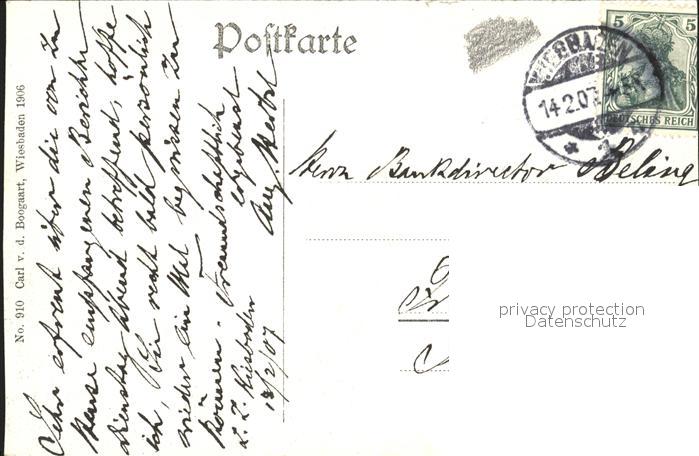 Postkarte
No. 910 Carl v. d. Boogaart, Wiesbaden 1906
WIESBADEN
14.2.07
5 5
DEUTSCHES REICH
Herrn Bankdirector Beling
Sehr erfreut über die von zu
Hause empfangenen Berichte
Dienstag Abend betreffend, hoffe
ich, Sie recht bald persönlich
wieder ein Mal begrüssen zu
können. Freundschaftlich
ergebenst
Aug. Herbst
z. Z. Wiesbaden
13/2/07
privacy protection
Datenschutz